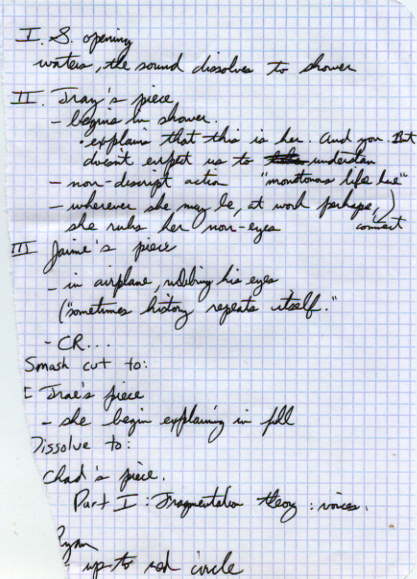 I. S. opening
waters, the sound dissolves to shower
II. Tray's piece
- begins in shower.
• explains that this is her. And you. But
doesn't expect us to understan
- non-discript action "monotonos life line"
- wherever she may be, at work perhaps,
she rubs her non-eyes connect
III Jaime's piece
- in airplane, rubbing his eyes
("sometimes history repeats itself."
- CR...
Smash cut to:
I Trae's piece
- she begin explaining in full
Dissolve to:
Chad's piece.
Part I: Fragmentation theory: voices.
Ryan
- up to red circle